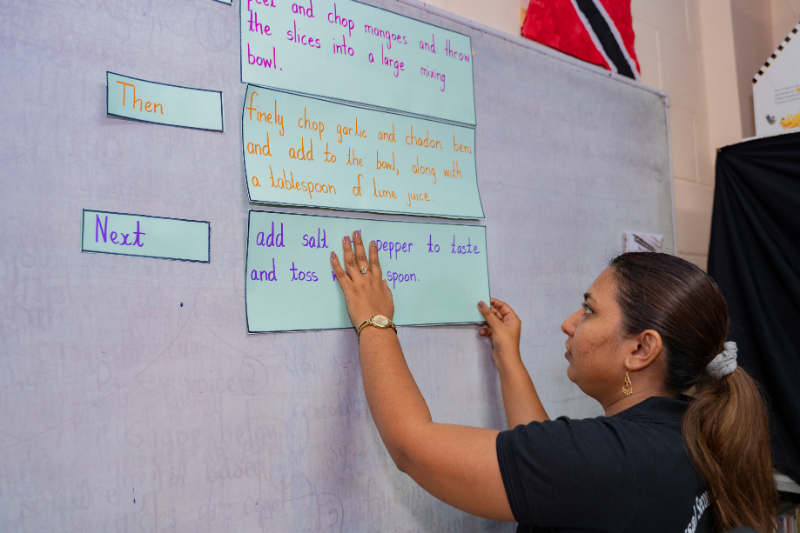 peel and chop mangoes and throw
the slices into a large mixing
bowl.
Then
finely chop garlic and chadon beni
and add to the bowl, along with
a tablespoon of lime juice.
Next
add salt pepper to taste
and toss spoon.